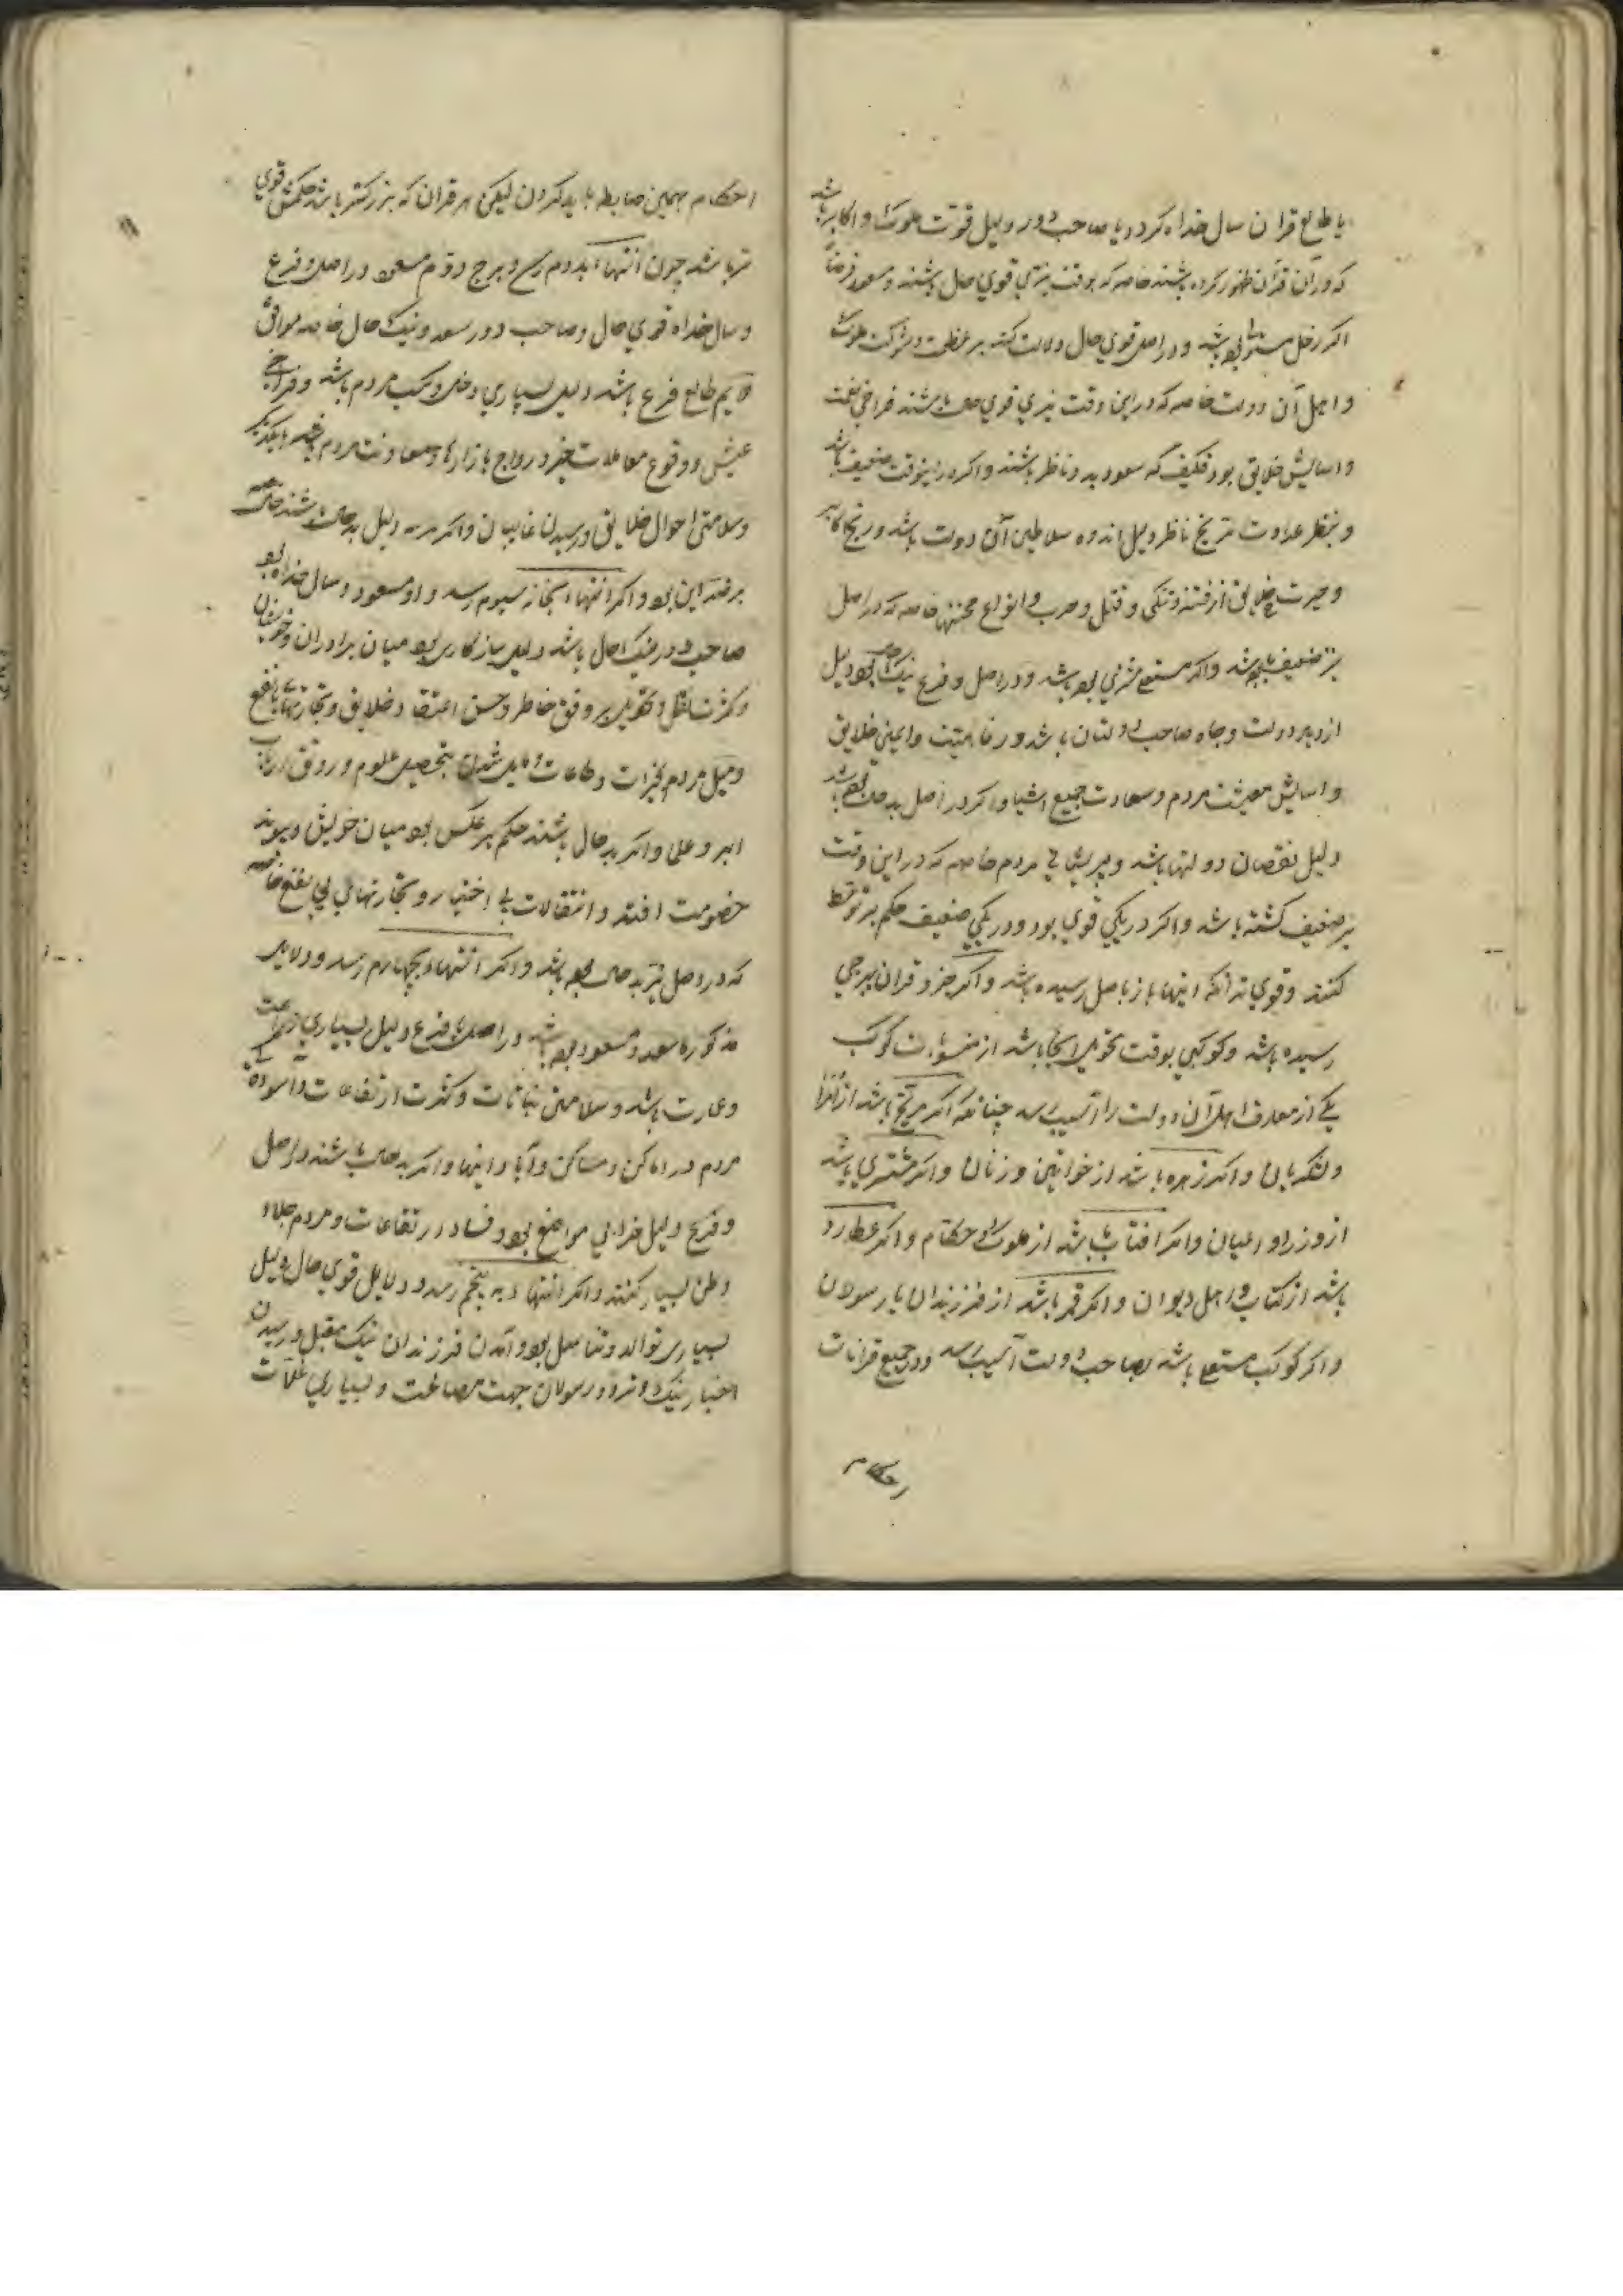 یا طالع قران سال خداه کردد یا صاحب دور دلیل قوت ملوک و اکابر باشد
که در آن قران ظهور کرده باشند خاصه که بوقت نیز قوی حال باشند و مسعود
اکر زحل بوده باشد و در اصل قوی حال دلالت کند بر عظمت و شوکت ملوک
و اهل آن دولت خاصه که در این وقت نیز قوی حال باشند فراخی نعمت
و اسایش خلایق بود فکیف که سعود بدو ناظر باشند و اکر در اینوقت ضعیف باشد
و بنظر عداوت مریخ ناظر دلیل اندوه سلاطین آن دولت باشد و رنج اکابر
و حیرت خلایق از فتنه و تنکی و قتل و حرب و انواع محنتها خاصه که در اصل
نیز ضعیف باشد واکر مستولی مشتری بوده باشد و در اصل و فرع نیک حال بود دلیل
ازدیاد دولت و جاه صاحب دولتان باشد و رفاهیت و ایمنی خلایق
و اسایش معیشت مردم و سعادت جمیع اشیا و اکر در اصل بد حال بوده باشد
دلیل نقصان دولتها باشد و پریشانی مردم خاصه که در این وقت
نیز ضعیف کشته باشد واکر در یکی قوی بود و در یکی ضعیف حکم بر توسط
کنند و قوی تر آنکه انتها باز باصل رسیده باشد و اکر جزو قران ببرجی
رسیده باشد و کوکبی بوقت تحویل آنجا باشد از منسوبات کوکب
یکی از معارف اهل آن دولت را آسیب رسد چنانکه اکر مریخ باشد از امرا
و لشکریان و اکر زهره باشد از خواتین و زنان و اکر مشتری باشد
از وزرا و اعیان و اکر افتاب باشد از ملوک و حکام و اکر عطارد
باشد از کتاب و اهل دیوان و اکر قمر باشد از فرزندان یا رسولان
و اکر کوکب مستولی باشد بصاحب دولت آسیب رسد و در جمیع قرانات
احکام
احکام بهمین ضابطه باید کردن لیکن هر قران که بزرکتر باشد حکمش قوی
تر باشد چون انتها بدوم رسد و برج دوم مسعود در اصل و فرع
و سال خداه قوی حال و صاحب دور سعد و نیک حال خاصه موافق
ملایم طالع فرع باشد دلیل بسیاری دخل و کسب مردم باشد و فراخی
عیش و وقوع معاملات خیر و رواج بازارها و معاونت مردم با یکدیکر
و سلامتی احوال خلایق و رسیدن غایبان واکر هر سه دلیل بد حال باشند حکم
بر ضد این بود و اکر انتها بخانه سیوم رسد و او مسعود و سال خداه و
صاحب دور نیک حال باشد دلیل سازکاری بود میان برادران و خویشان
و کثرت نقل و تحویل بر وفق خاطر و حسن اعتقاد خلایق و تجارتهای با نفع
و میل مردم بخیرات و طاعات و مایل شدن بتحصیل علوم و رونق ارباب
و اکر بد حال باشند حکم بر عکس بود میان خویش و پیوند
خصومت افتد و انتقالات بی اختیار و تجارتهای بی نفع خاصه
که در اصل نیز بد حال بوده باشد و اکر انتها بچهارم رسد و دلایل
مذکوره سعد و مسعود بوده باشند در اصل و فرع دلیل بسیاری زراعت
و عمارت باشد و سلامتی نباتات و کثرت ارتفاعات و آسودکی
مردم در اماکن و مساکن و آبادانیها و اکر بد حال باشند در اصل
و فرع دلیل خرابی مواضع بود و فساد ارتفاعات و مردم جلاء
وطن بسیار کنند و اکر انتها به پنجم رسد و دلایل قوی حال دلیل
بسیاری توالد و تناسل بود و آمدن فرزندان نیک مقبل و رسیدن
اخبار نیک و تردد رسولان جهت مصالحت و بسیاری غلات